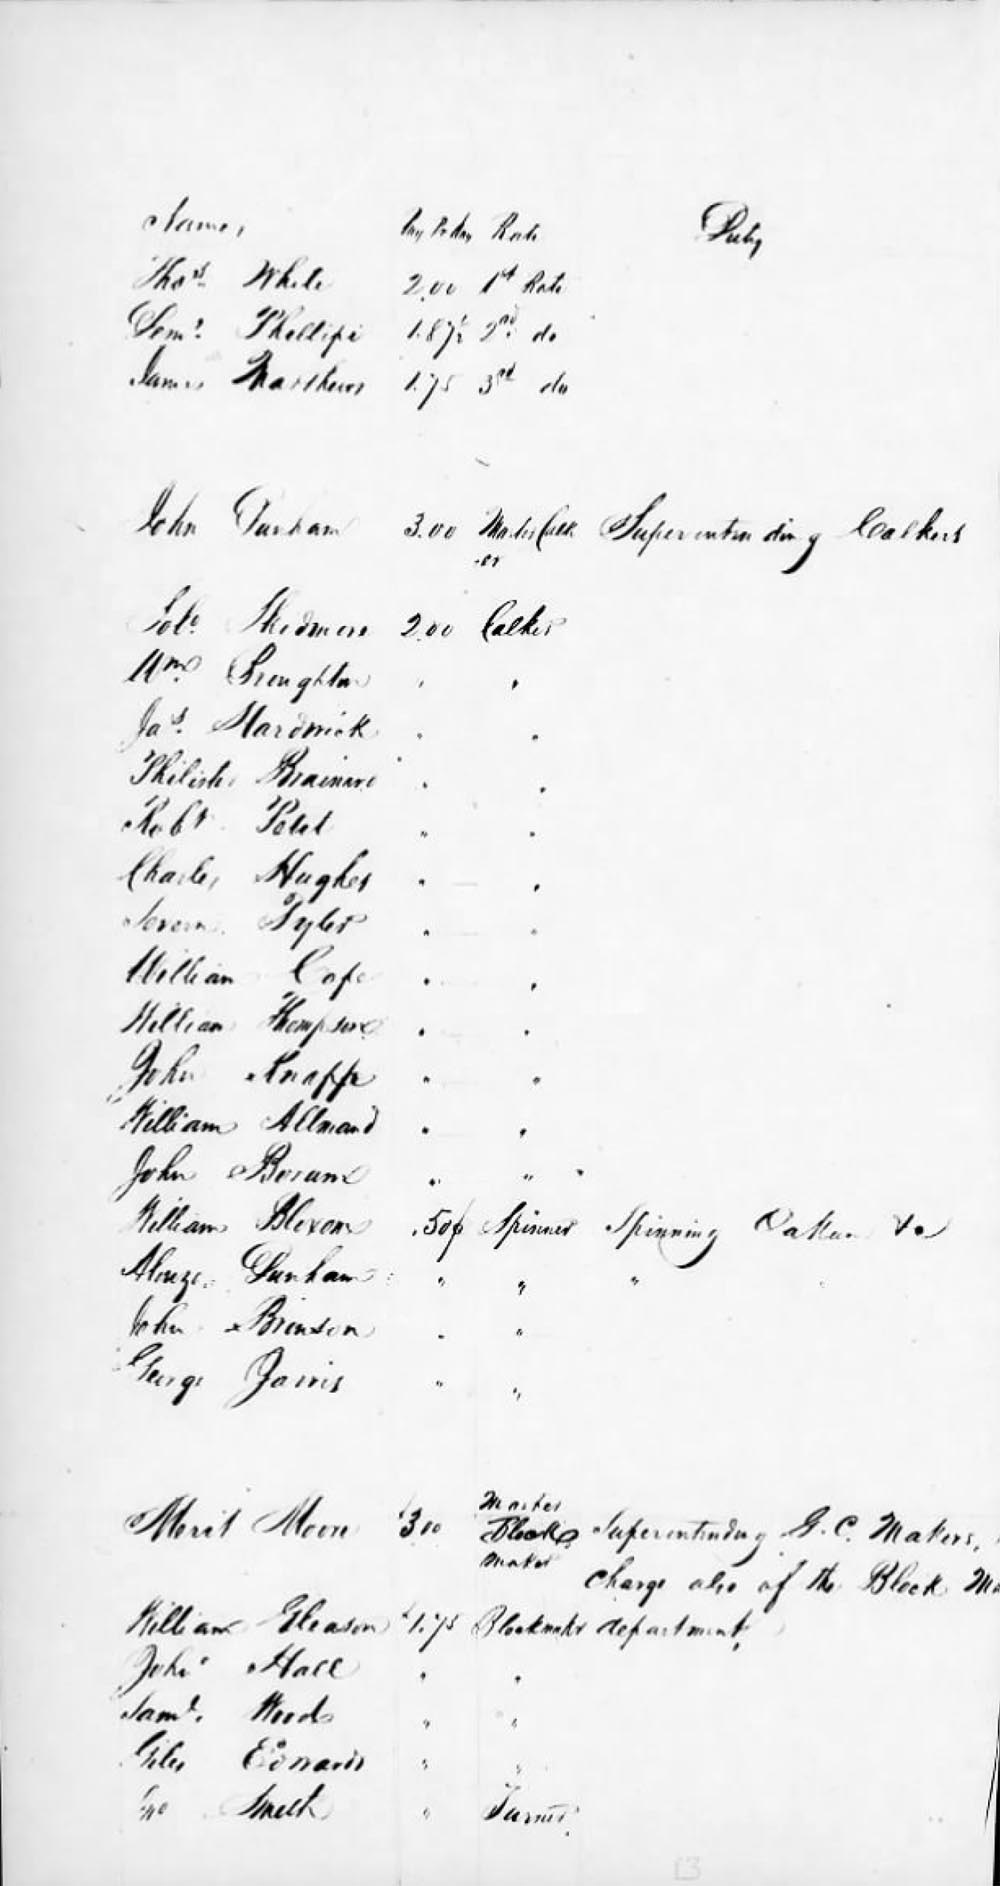 Names Pay Pr day Rate Duty
Thos White 2.00 1st Rate
Saml. Phillips 1.87½ 2nd do
James Matthews 1.75 3rd do
John Dunham 3.00 Master Calk Superintending Calkers
-er
Skidmore 2.00 Calker
Wm. Broughton " "
Jas. Hardwick " "
Brainard " "
Robt. Petet " "
Charles Hughes " "
Severn Tyler " "
William Cafe " "
William Thompson " "
John Knapp " "
William Allmand " "
John Boram " "
William Bloxom .50¢ Spinner Spinning Oakum &c
Alonzo Dunham " " "
John Brinson " "
George Jarvis " "
Master
Merit Moore $3.00 Block Superintending G. C. Makers,
Maker charge also of the Block Ma
William Gleason $1.75 Blockmaker department,
John Hall " "
Saml. Woods " "
Giles Edwards " "
Smith " Turner
13